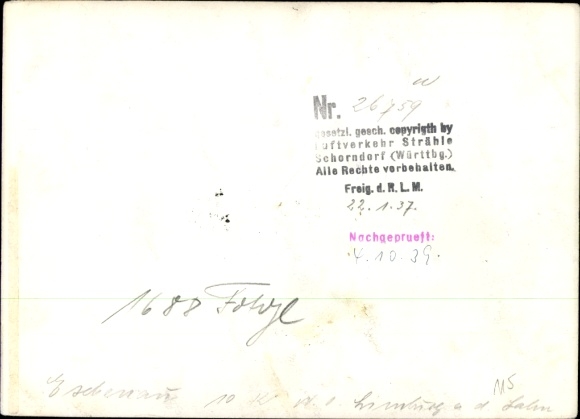 Nr. 26759
gesetzl. gesch. copyrigth by
Luftverkehr Strähle
Schorndorf (Württbg.)
Alle Rechte vorbehalten.
Freig. d. R. L. M.
22. 1. 37.
Nachgeprueft:
4. 10. 39.
1688
115
Eschenau 10 Limburg a d Lahn